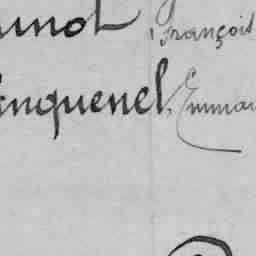 unot, François
inquenel, Emma